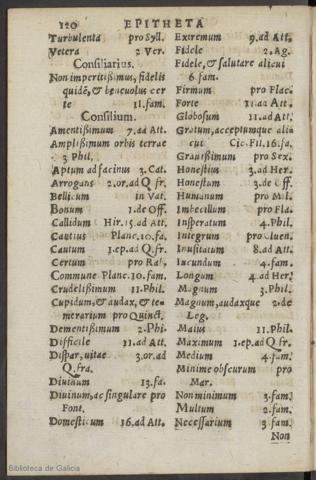 120 EPITHETA
Turbulenta pro Syll.
Vetera 2 Ver.
Consiliarius.
Non imperitißimus, fidelis
quidē, & beneuolus cer
te 11.fam.
Consilium.
Amentißimum 7.ad Att.
Amplißimum orbis terræ
3 Phil.
Aptum ad facinus 3.Cat.
Arrogans 2.or.ad Q.fr.
Bellicum in Vat.
Bonum 1.de Off.
Callidum Hir.15.ad Att.
Cautius Planc.10.fa.
Cautum 1.ep.ad Q.fr.
Certum pro Rab.
Commune Planc.10.fam.
Crudelißimum 11.Phil.
Cupidum, & audax, & te-
merarium pro Quinct.
Dementißimum 2.Phi.
Difficile 11.ad Att.
Dispar, uitæ 3.or.ad
Q.fra.
Diuinum 13.fa.
Diuinum, ac singulare pro
Font.
Domesticum 16.ad Att.
Extremum 9.ad Att.
Fidele 2.Ag.
Fidele, & salutare alicui
6.fam.
Firmum pro Flac.
Forte 11.ad Att.
Globosum 11.ad Att.
Gratum, acceptumque ali
cui Cic.Fil.16.fa.
Grauißimum pro Sex.
Honestius 3.ad Her.
Honestum 3.de Off.
Humanum pro Mil.
Imbecillum pro Fla.
Insperatum 4.Phil.
Integrum pro Cluen.
Inusitatum 8.ad Att.
Iucundum 4.fam.
Longum 4.ad Her.
Magnum 3.Phil.
Magnum, audaxque 2.de
Leg.
Maius 11.Phil.
Maximum 1.ep.ad Q.fr.
Medium 4.fam.
Minime obscurum pro
Mar.
Non minimum 3.fam.
Multum 2.fam.
Necessarium 3.fam.
Non
Biblioteca de Galicia